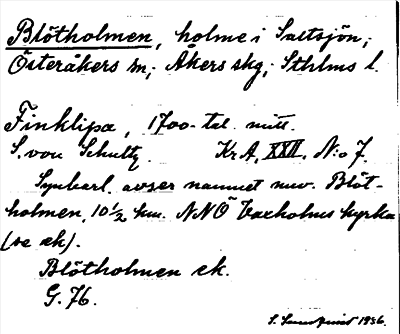 Blötholmen, holme i Saltsjön,
Österåkers sn, Åkers skg, Sthlms l.
Finklipa, 1700-tal. mitt.
S. von Schultz. Kr A, XXII, N:o 7.
Synbarl. avser namnet nuv. Blöt-
holmen, 10½ km. NNÖ Vaxholms kyrka
(se ek).
Blötholmen ek.
G. 76.
1936.